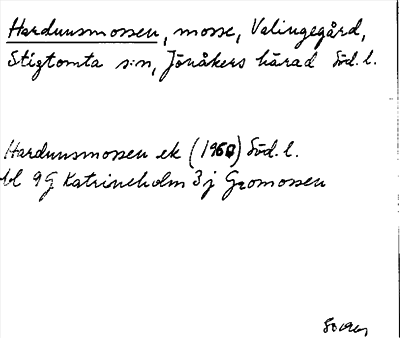 Hardunsmossen, mosse, Valingegård,
Stigtomta s:n, Jönåkers härad Söd. l.
Hardunsmossen ek (1960) Söd. l.
bl 9G Katrineholm 3j Gromossen